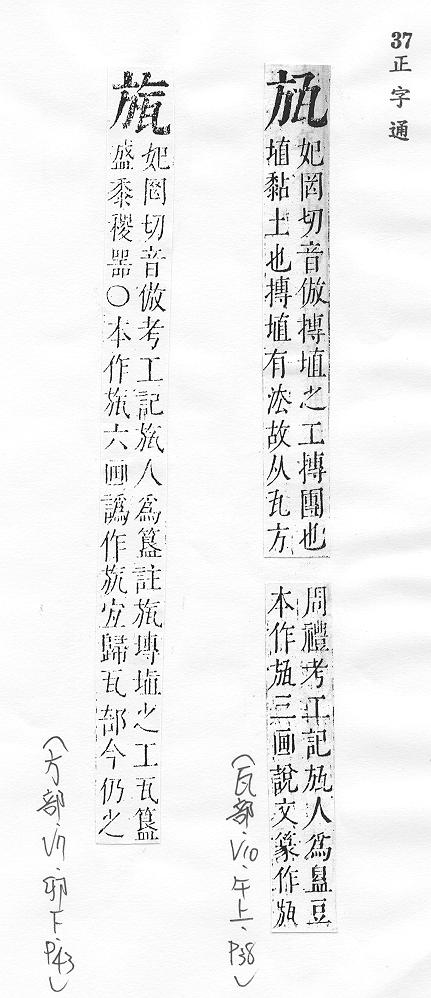 37
正字通
瓬
妃罔切音倣摶埴之工摶團也
埴黏土也摶埴有㳒故从瓦方
周禮考工記瓬人爲豆
本作瓬三画說文篆作瓬
(瓦部.V10.午上.P38)
旊
妃罔切音倣考工記旊人爲簋註旊摶埴之工瓦簋
盛黍稷器○本作旊六画譌作旊宜歸瓦部今仍之
(方部.V7.卯下.P43)